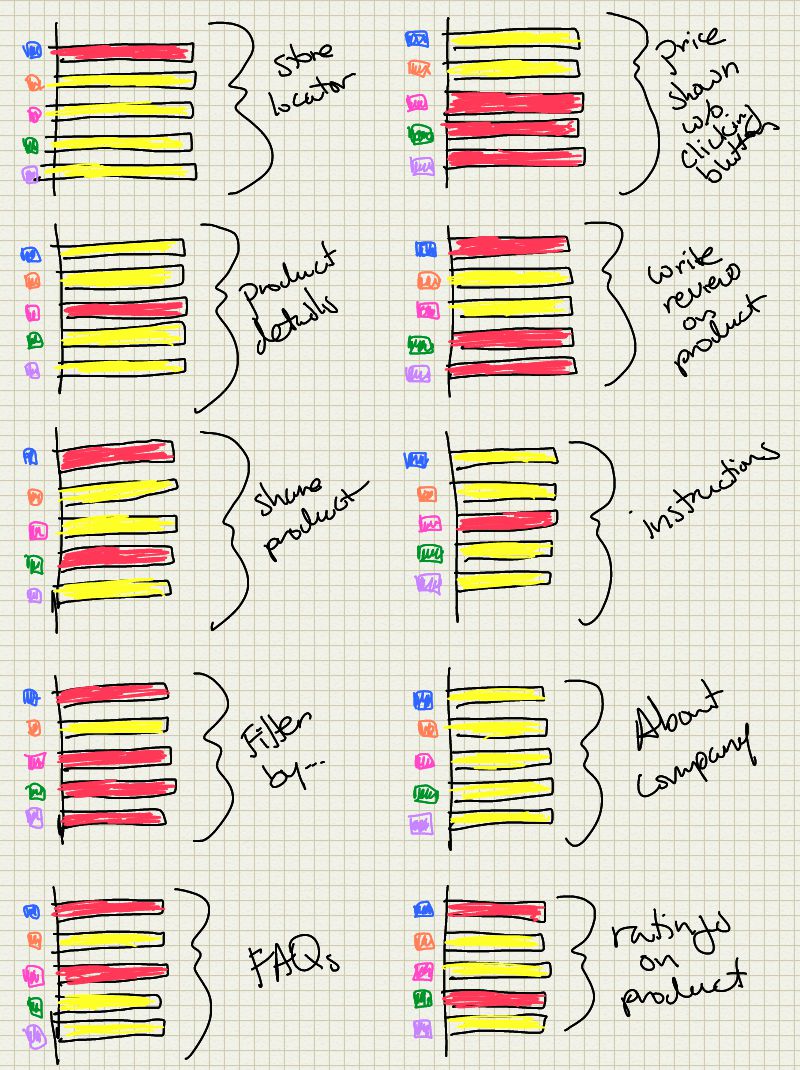 store
locator
price
shown
w/o
clicking
button
product
details
write
review
on
product
share
product
instructions
Filter
by...
About
company
FAQs
ratings
on
product